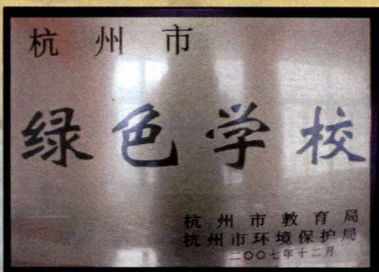 杭州市
绿色学校
杭州市教育局
杭州市环境保护局
二〇〇七年十二月